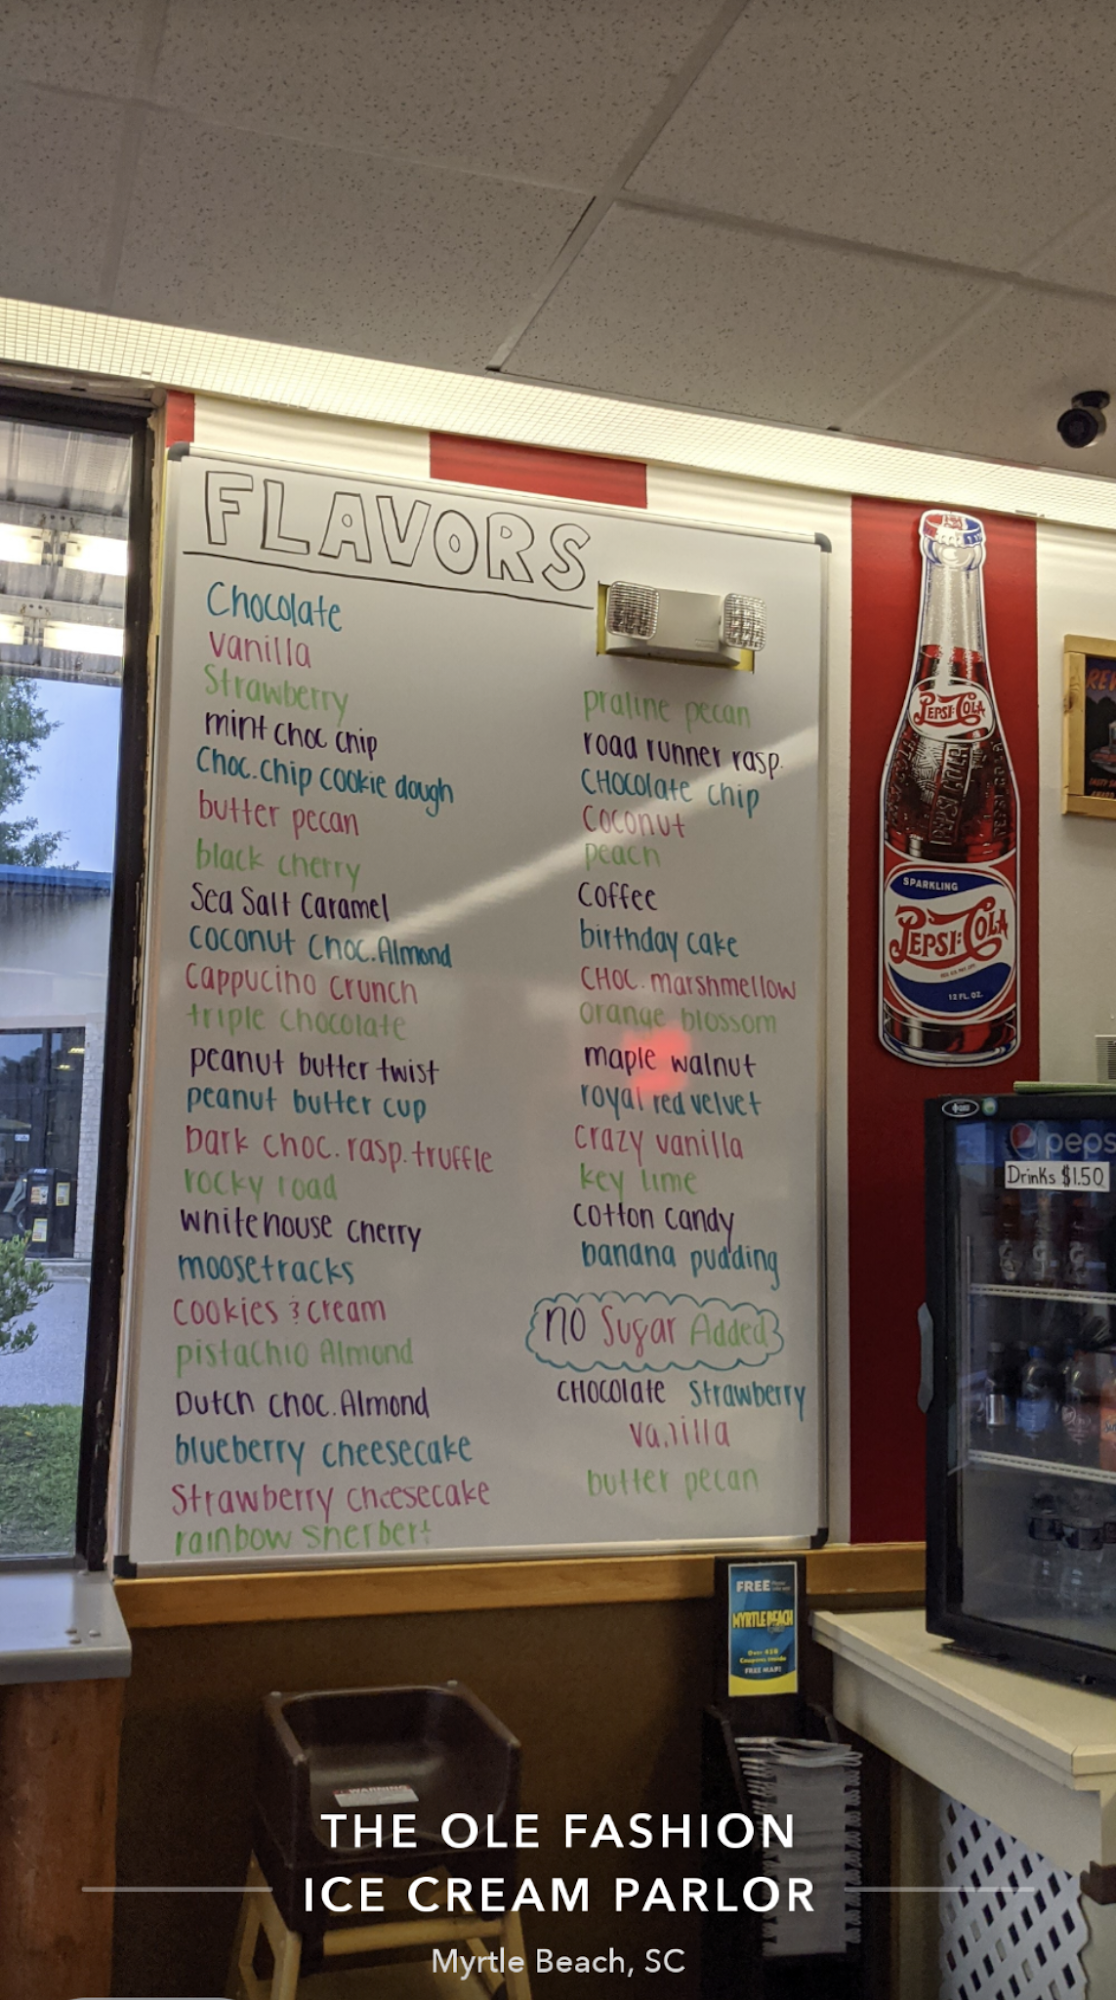 FLAVORS
Chocolate
vanilla
Strawberry
mint choc chip
Choc.chip cookie dough
butter pecan
black cherry
Sea Salt Caramel
coconut Choc.Almond
Cappucino Crunch
triple chocolate
peanut butter twist
peanut butter cup
Dark choc. rasp.truffle
rocky road
whitehouse cherry
moosetracks
Cookies & cream
pistachio Almond
Dutch choc.Almond
blueberry cheesecake
Strawberry cheesecake
rainbow sherbert
praline pecan
road runner rasp.
CHOcolate chip
Coconut
peach
Coffee
birthday cake
CHOC. marshmellow
orange blossom
maple walnut
royal red velvet
crazy vanilla
key lime
cotton candy
banana pudding
no Sugar Added
CHOColate Strawberry
vanilla
butter pecan
PEPSI-COLA
SPARKLING
PEPSI-COLA
12 FL. OZ.
pepsi
Drinks $1.50
FREE
MYRTLE BEACH
FREE MAP!
WARNING
THE OLE FASHION
ICE CREAM PARLOR
Myrtle Beach, SC